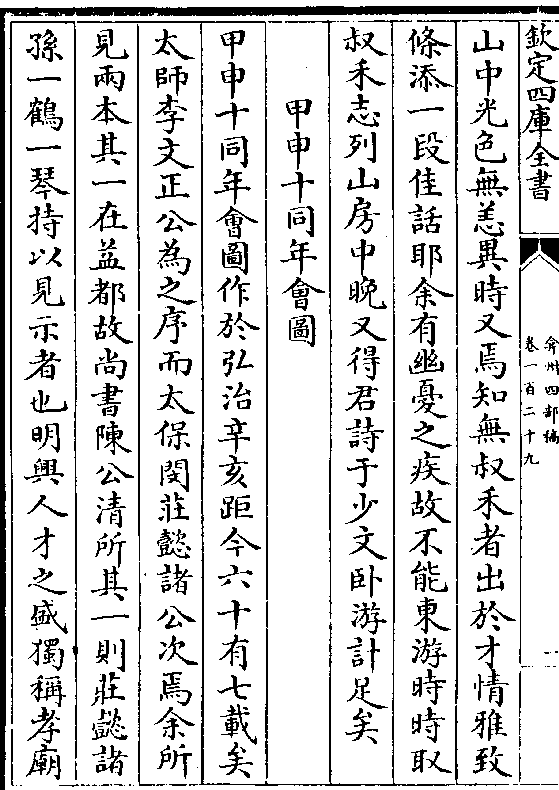 欽定四庫全書
弇州四部稿
卷一百二十九
一
山中光色無恙異時又焉知無叔禾者出於才情雅致
條添一段佳話耶余有幽憂之疾故不能東游時時取
叔禾志列山房中晚又得君詩于少文卧游計足矣
甲申十同年會圖
甲申十同年會圖作於弘治辛亥距今六十有七載矣
太師李文正公為之序而太保閔莊懿諸公次焉余所
見兩本其一在益都故尚書陳公清所其一則莊懿諸
孫一鶴一琴持以見示者也明興人才之盛獨稱孝廟